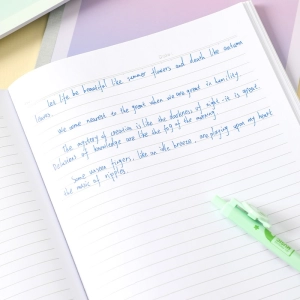 Let life be beautiful like summer flowers and death like autumn
leaves.
We come nearest to the great when we are great in humility.
The mystery of creation is like the darkness of night--it is great.
Delusions of knowledge are like the fog of the morning.
Some unseen fingers, like an idle breeze, are playing upon my heart
the music of ripples.